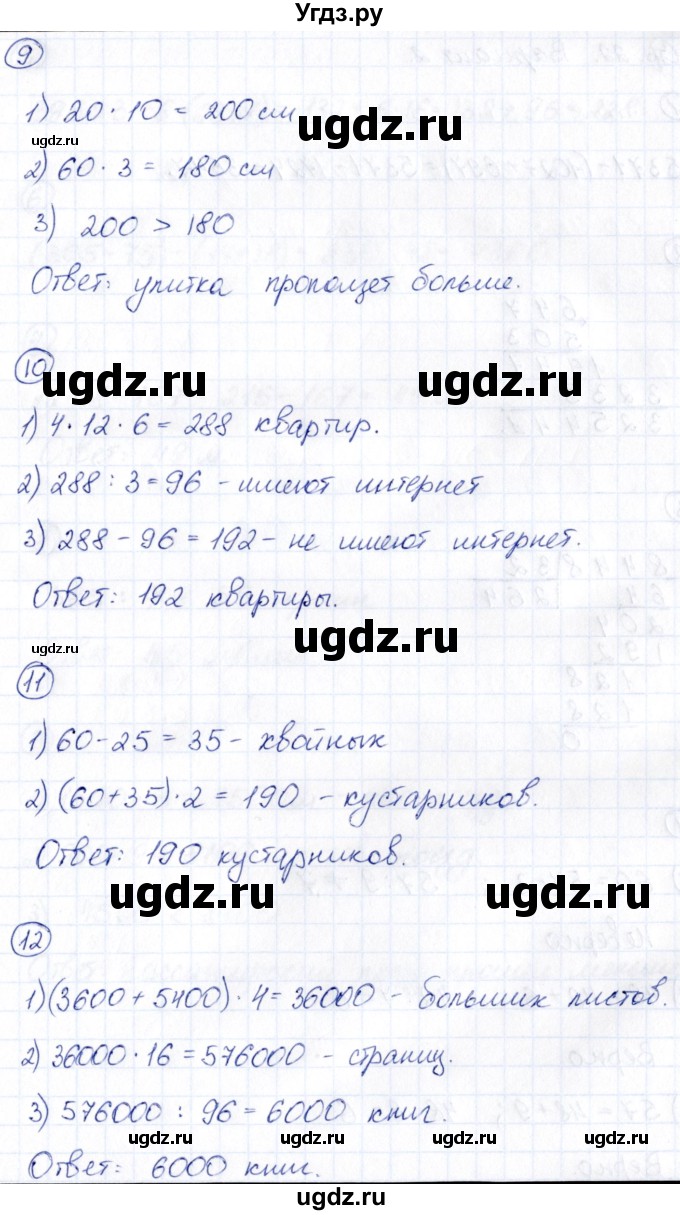 Угдз.ру
9
1) 20 · 10 = 200 см
ugdz.ru
ugdz.ru
2) 60 · 3 = 180 см
ugdz.ru
3) 200 > 180
Ответ: улитка проползет больше.
10
ugdz.ru
ugdz.ru
1) 4 · 12 · 6 = 288 квартир.
2) 288 : 3 = 96 - имеют интернет
3) 288 - 96 = 192 - не имеют интернет.
Ответ: 192 квартиры.
ugdz.ru
ugdz.ru
11
1) 60 - 25 = 35 - хвойных
2) (60 + 35) · 2 = 190 - кустарников.
Ответ: 190 кустарников.
ugdz.ru
ugdz.ru
12
1) (3600 + 5400) · 4 = 36000 - больших листов.
2) 36000 · 16 = 576000 - страниц.
3) 576000 : 96 = 6000 книг.
ugdz.ru
ugdz.ru
Ответ: 6000 книг.
ugdz.ru